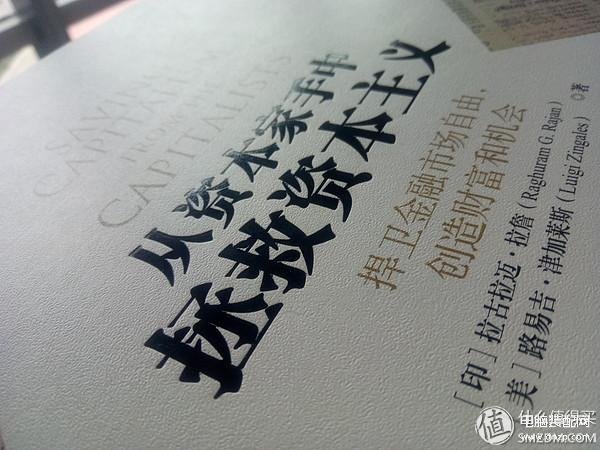 SAVING
CAPITALISM
FROM
CAPITALISTS
从资本家手中
拯救资本主义
捍卫金融市场自由,
创造财富和机会
[印] 拉古拉迈·拉詹 (Raghuram G. Rajan)
[美] 路易吉·津加莱斯 (Luigi Zingales) ◎著
值 什么值得买
SMZDM.COM
电脑装配网